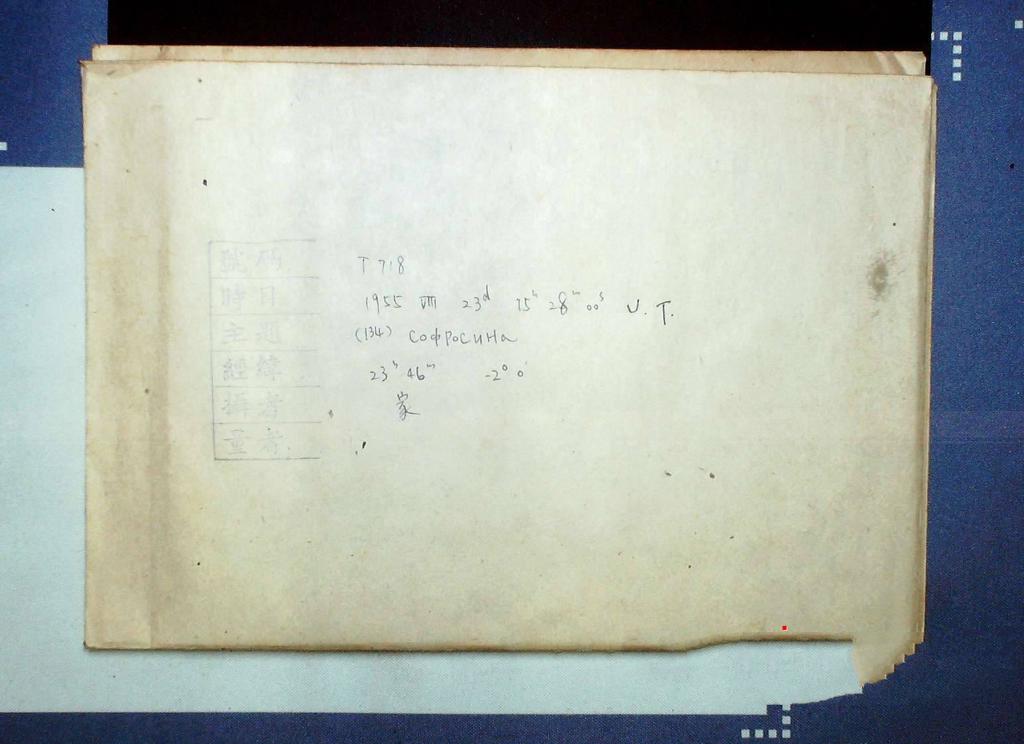 號碼 T 718
時日 1955 VIII 23ᵈ 15ʰ 28ᵐ 00ˢ U.T.
主題 (134) Софросина
經緯 23ʰ 46ᵐ -2° 0'
攝者
量者